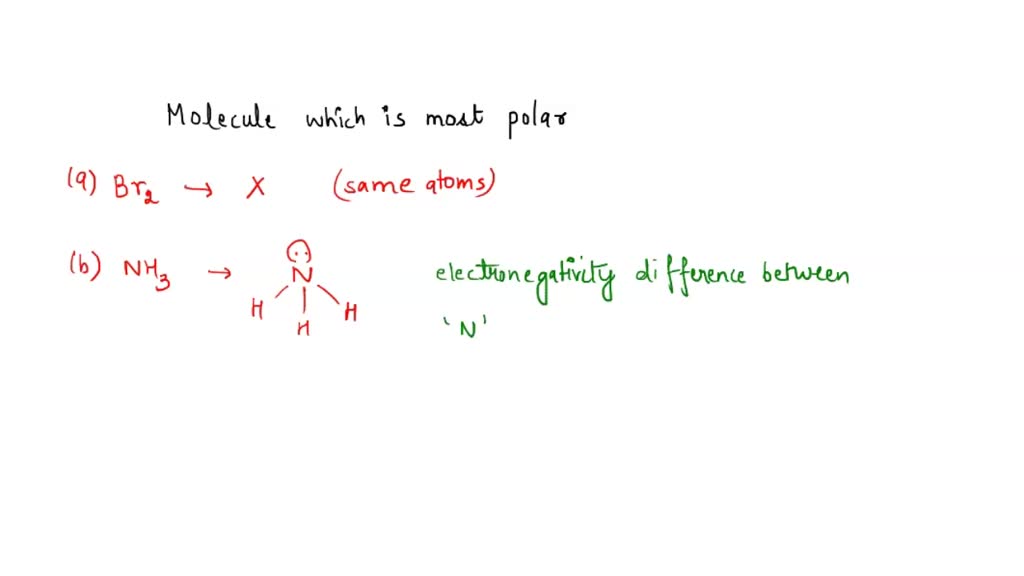 Molecule which is most polar
(a) Br₂ → X (same atoms)
(b) NH₃ → N H H H electronegativity difference between
'N'